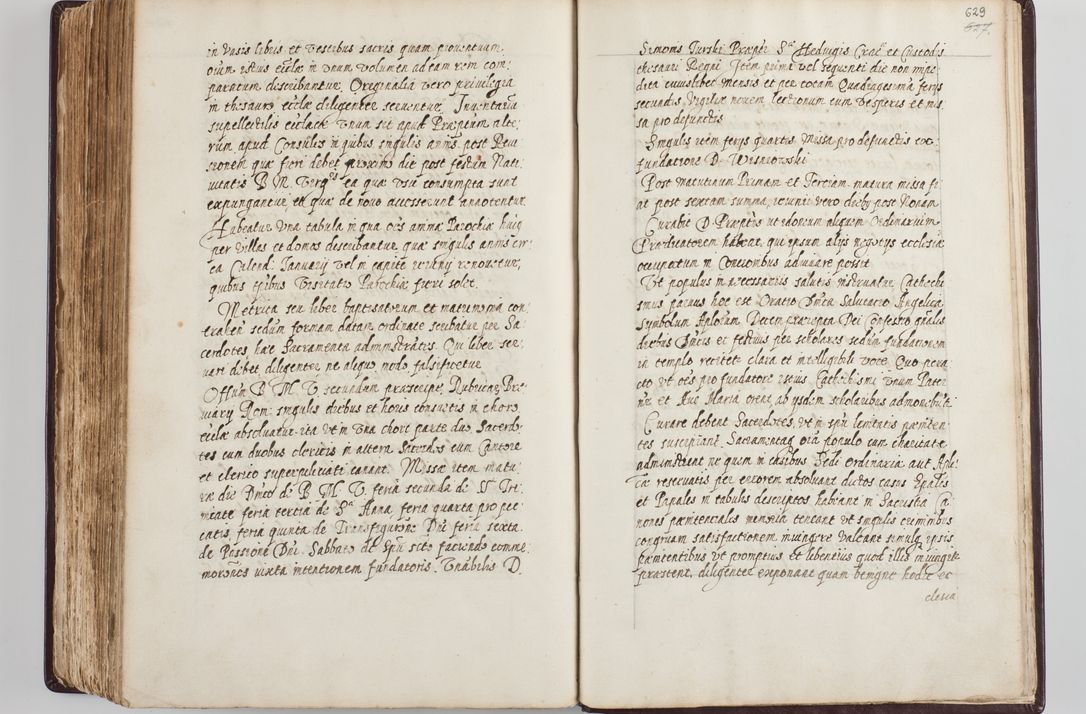 in vasis libris et vestibus sacris quam proventuum
oium istius eccliæ in unum volumen ad eam rem com:
paratum describantur. Originalia vero privilegia
in thesauro eccliæ diligenter serventur. Inventaria
supellectilis eccliacæ unum sit apud Præptum alte:
rum apud Consules in quibus singulis annis post Revi
sionem quæ fieri debet proximo die post festum Nati
vitatis B. M. Verg. ea quæ usu consumpta sunt
expungantur, et quæ de novo accesserunt annotentur.
Habeatur una tabula in qua oes animæ Parochiæ huius
per villas et domos describantur quæ singulis annis cir
ca Calend. Januarij vel in capite renovetur,
quibus visitatio Parochiæ fieri solet.
Metrica seu liber baptisatorum et matrimonia con
trahen: secdum formam datam ordinate scribatur per Sa
cerdotes, hæc Sacramenta administrantes. Qui liber ser:
vari debet diligenter ne aliquo modo falsificetur.
Offium B. M. V. secundum præscript. Rubricæ Bre
viary Rom. singulis diebus et horis consuetis in choro
eccliæ absolvatur ita ut in una chori parte duo Sacerdo
tes cum duobus clericis in altera Sacerdos cum Cantore
et clerico superpelliceati canant. Missæ item matu
ræ die Dnico de B. M. V. feria secunda de SS. Tri
nitate feria tertia de S. Anna feria quarta pro pec
catis, feria quinta de Transfigurone Dni feria sexta
de Passione Dni. Sabbato de Spu scto faciendo comme
morones iuxta intentionem fundatoris. Vnabilis D.
629
627.
Simonis Turski Præpti S. Hedvigis Crac. et Custodis
thesauri Regni Item prima vel sequenti die non impe
dita cuiuslibet mensis et per totam Quadragesimam ferys
secundis Vigiliæ novem lectionum cum Vesperis et mis
sa pro defunctis.
Singulis item ferys quartis Missa pro defunctis ex
fundatione D. Wisniowski
Post matutinum Primam et Tertiam matura missa fi
at post sextam summa, reliqui vero decby post Nonam
Curabit D. Præptus ut idoneum aliquem Ordinarium
Prædicatorem habeat, qui ipsum alys negotys ecclesiæ
occupatum in Concionibus adiuvare possit.
Ut populus in necessarijs salutis instruatur Catheche
smus parvus hoc est Oratio Dnica Salutatio Angelica
Symbolum Aplorum Decem præcepta Dei Confessio gnalis
diebus Dnicis et festivis per scholares secdum fundationem
in templo recitetur clara et intelligibili voce. Quo pera
cto ut oes pro fundatore istius Cathechismi unum Pater
nr. et Ave Maria orent ab ysdem scholaribus admonebuntur
Curare debent Sacerdotes, ut in spu lenitatis pæniten
tes suscipiant, Sacramentaq ora populo cum charitate
administrent ne quem in casibus Sedi ordinariæ aut Apli
cæ reservatis per errorem absolvant dictos casus Epales
et Papales in tabulis descriptos habeant in Sacristia Ca
nones pænitentiales memoria teneant ut singulis criminibus
congruam satisfactionem iniungere valeant simulq ipsis
pænitentibus ut promptius et libentius quod illis iniungitur
præstent, diligenter exponant quam benigne hodie ec
clesia